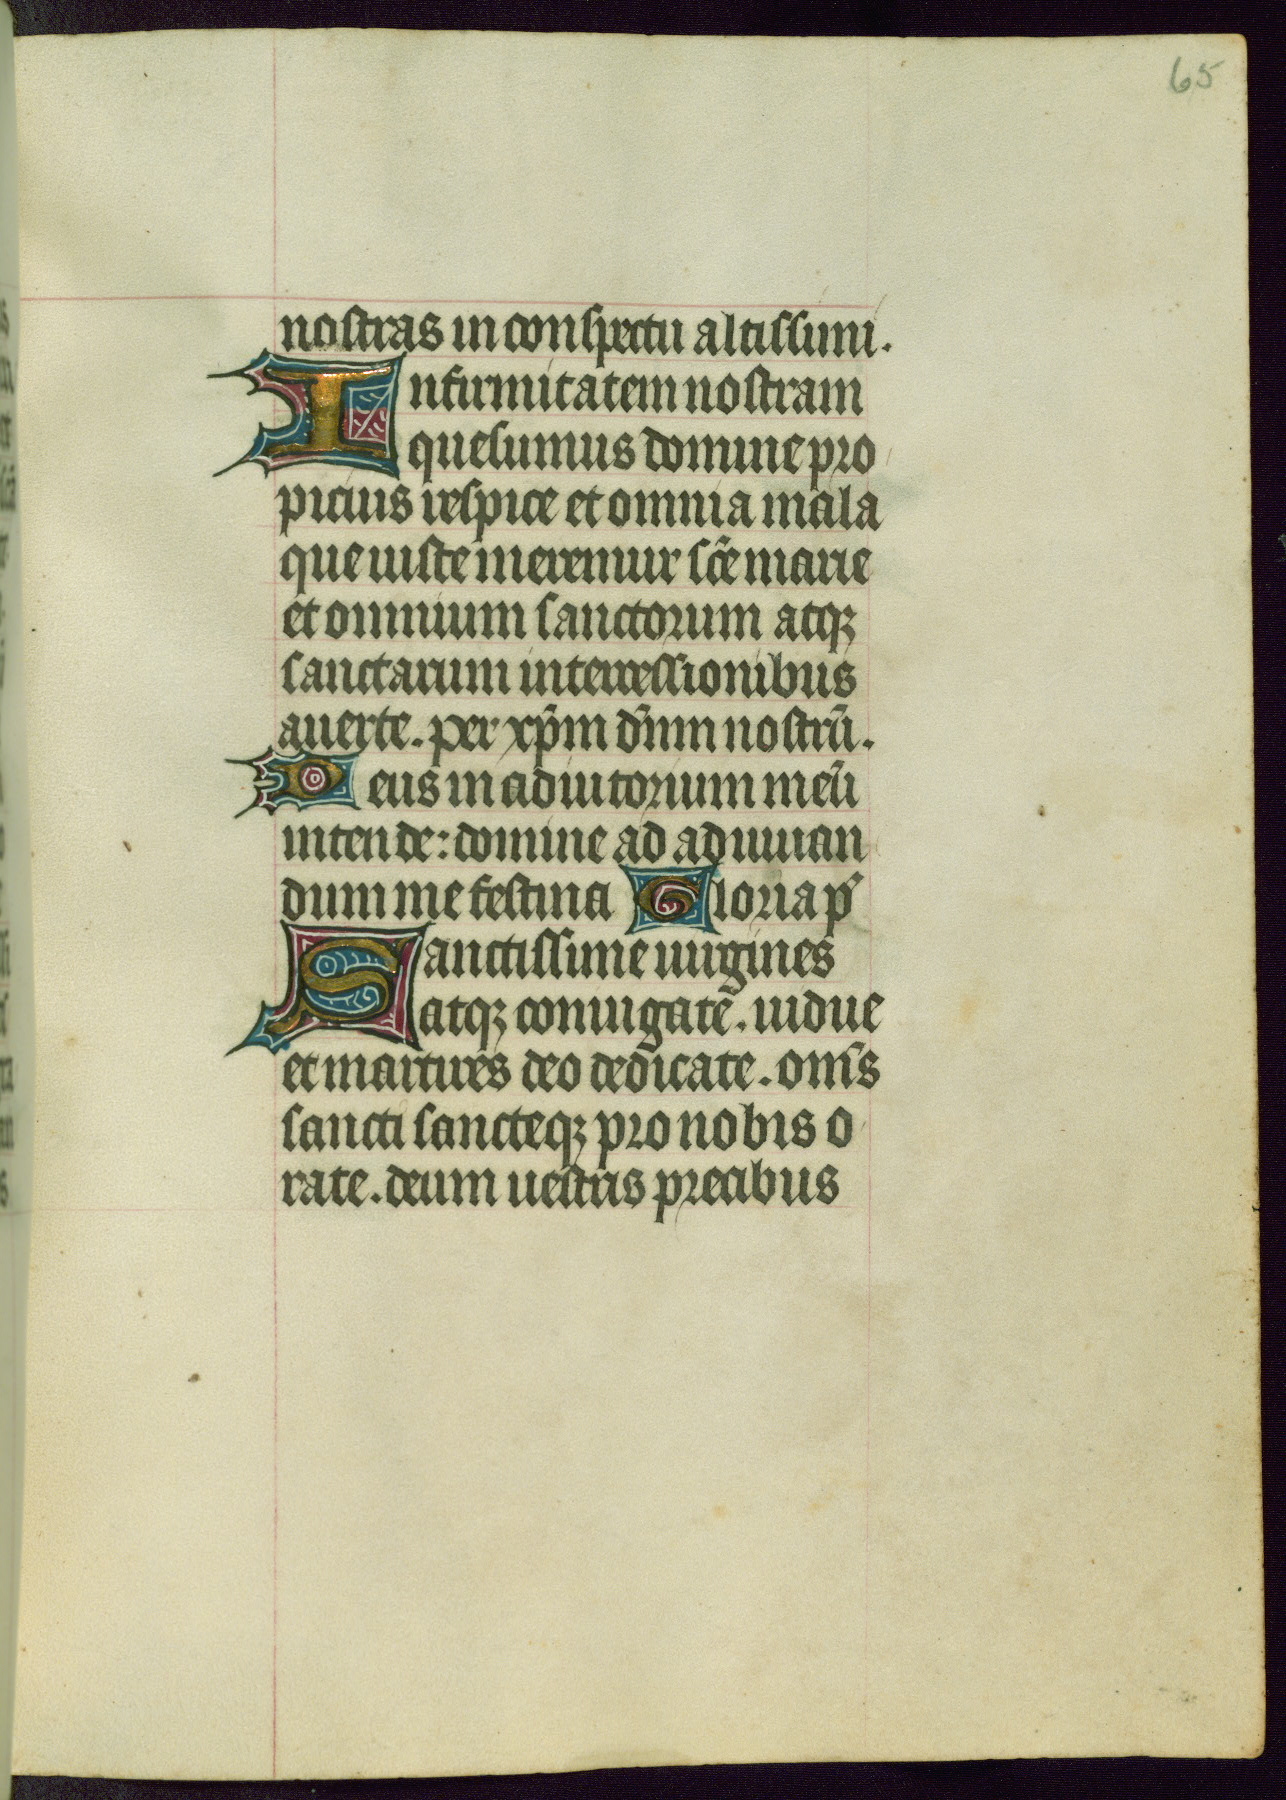 65
nostras in conspectu altissimi.
Infirmitatem nostram
quesumus domine pro
picius respice et omnia mala
que iuste meremur sc̄e marie
et omnium sanctorum atqꝫ
sanctarum intercessionibus
auerte. per xp̄m dn̄m nostrū.
Deus in adiutorium meū
intende: domine ad adiuuan
dum me festina Gloria p̄
Sanctissime uirgines
atqꝫ coniugate. uidue
et martires deo dedicate. om̄s
sancti sancteqꝫ pro nobis o
rate. deum uestris precibus